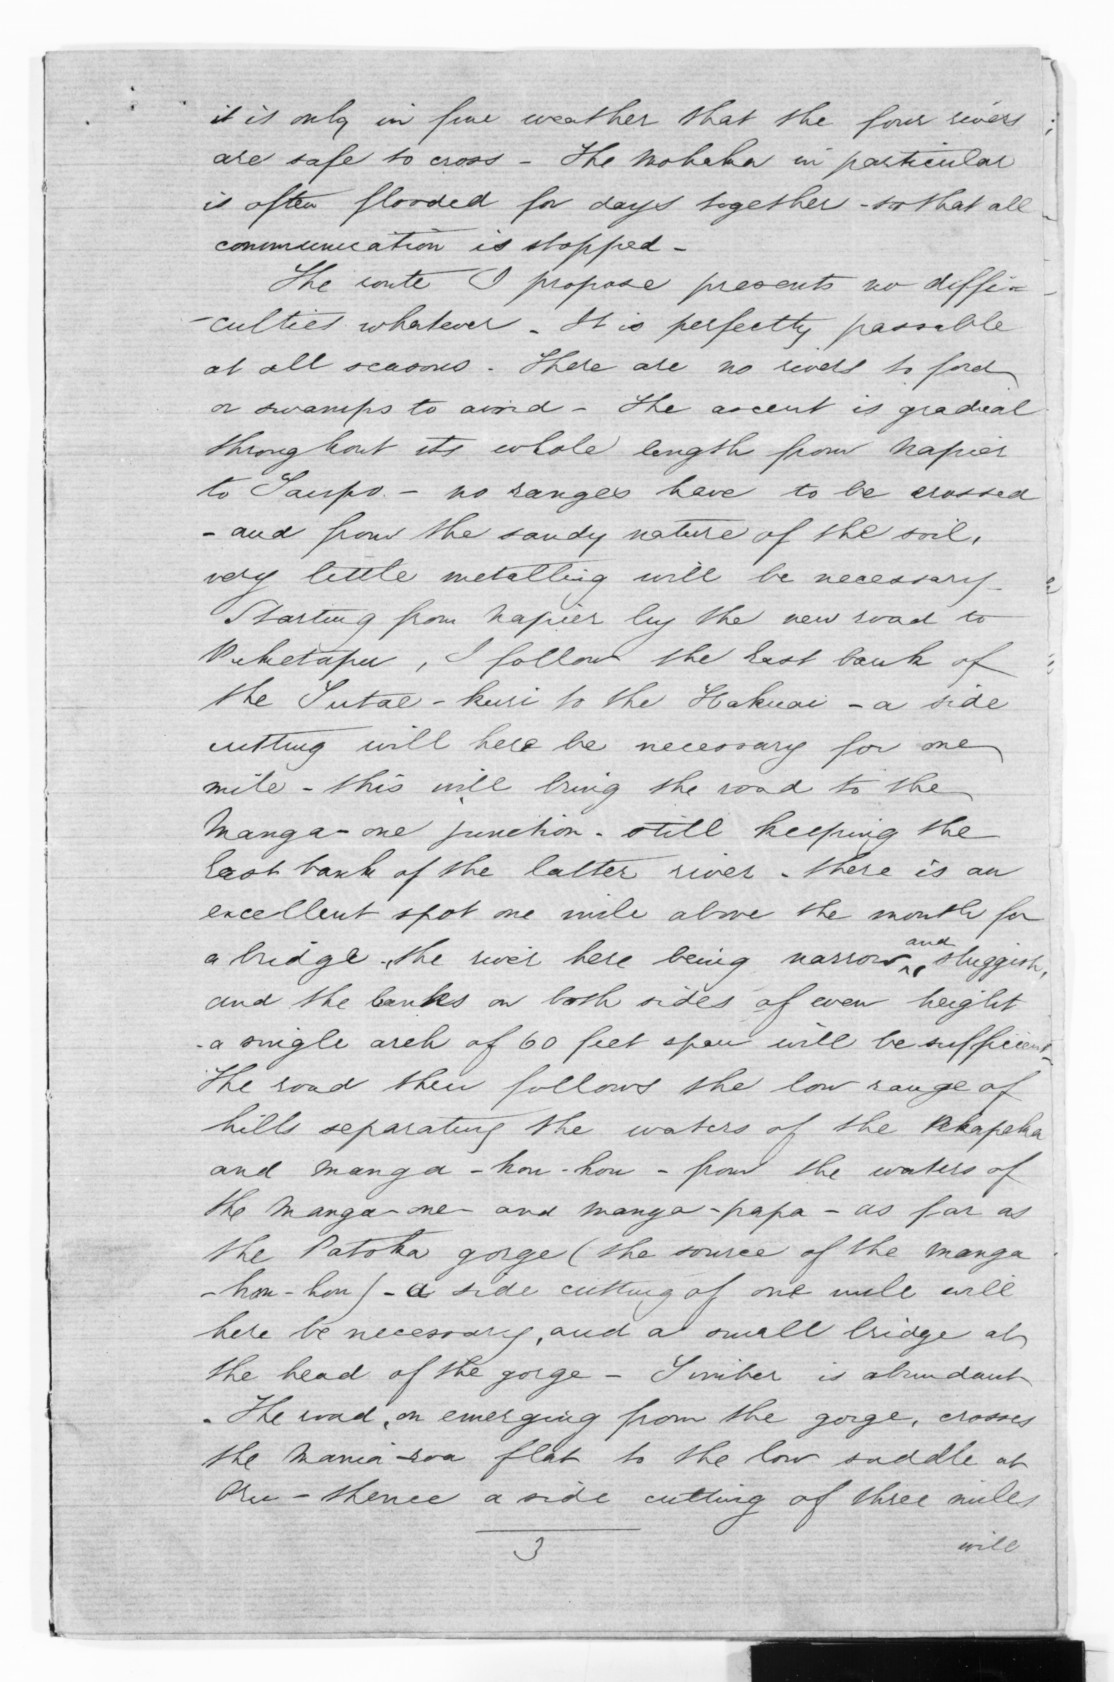 it is only in fine weather that the four rivers
are safe to cross - The Mohaka in particular
is often flooded for days together - so that all
communication is stopped -
The route I propose presents no diffi-
-culties whatever - It is perfectly passable
at all seasons - There are no rivers to ford
or swamps to avoid - The ascent is gradual
throughout its whole length from Napier
to Taupo - no ranges have to be crossed
- and from the sandy nature of the soil,
very little metalling will be necessary -
Starting from Napier by the new road to
Puketapu, I follow the East bank of
the Tutae-kuri to the Hakuai - a side
cutting will here be necessary for one
mile - this will bring the road to the
Manga-one junction - still keeping the
East bank of the latter river - there is an
excellent spot one mile above the mouth for
a bridge, the river here being narrow, and sluggish,
and the banks on both sides of even height
- a single arch of 60 feet span will be sufficient -
The road then follows the low range of
hills separating the waters of the
and Manga-hou-hou - from the waters of
the Manga-one - and Manga-papa - as far as
the Patoka gorge (the source of the Manga
-hou-hou) - a side cutting of one mile will
here be necessary, and a small bridge at
the head of the gorge - Timber is abundant
- The road, on emerging from the gorge, crosses
the flat to the low saddle at
- thence a side cutting of three miles
3
will